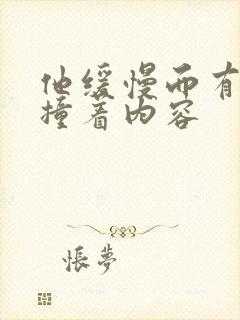 他缓慢而有
撞着内容
怅夢